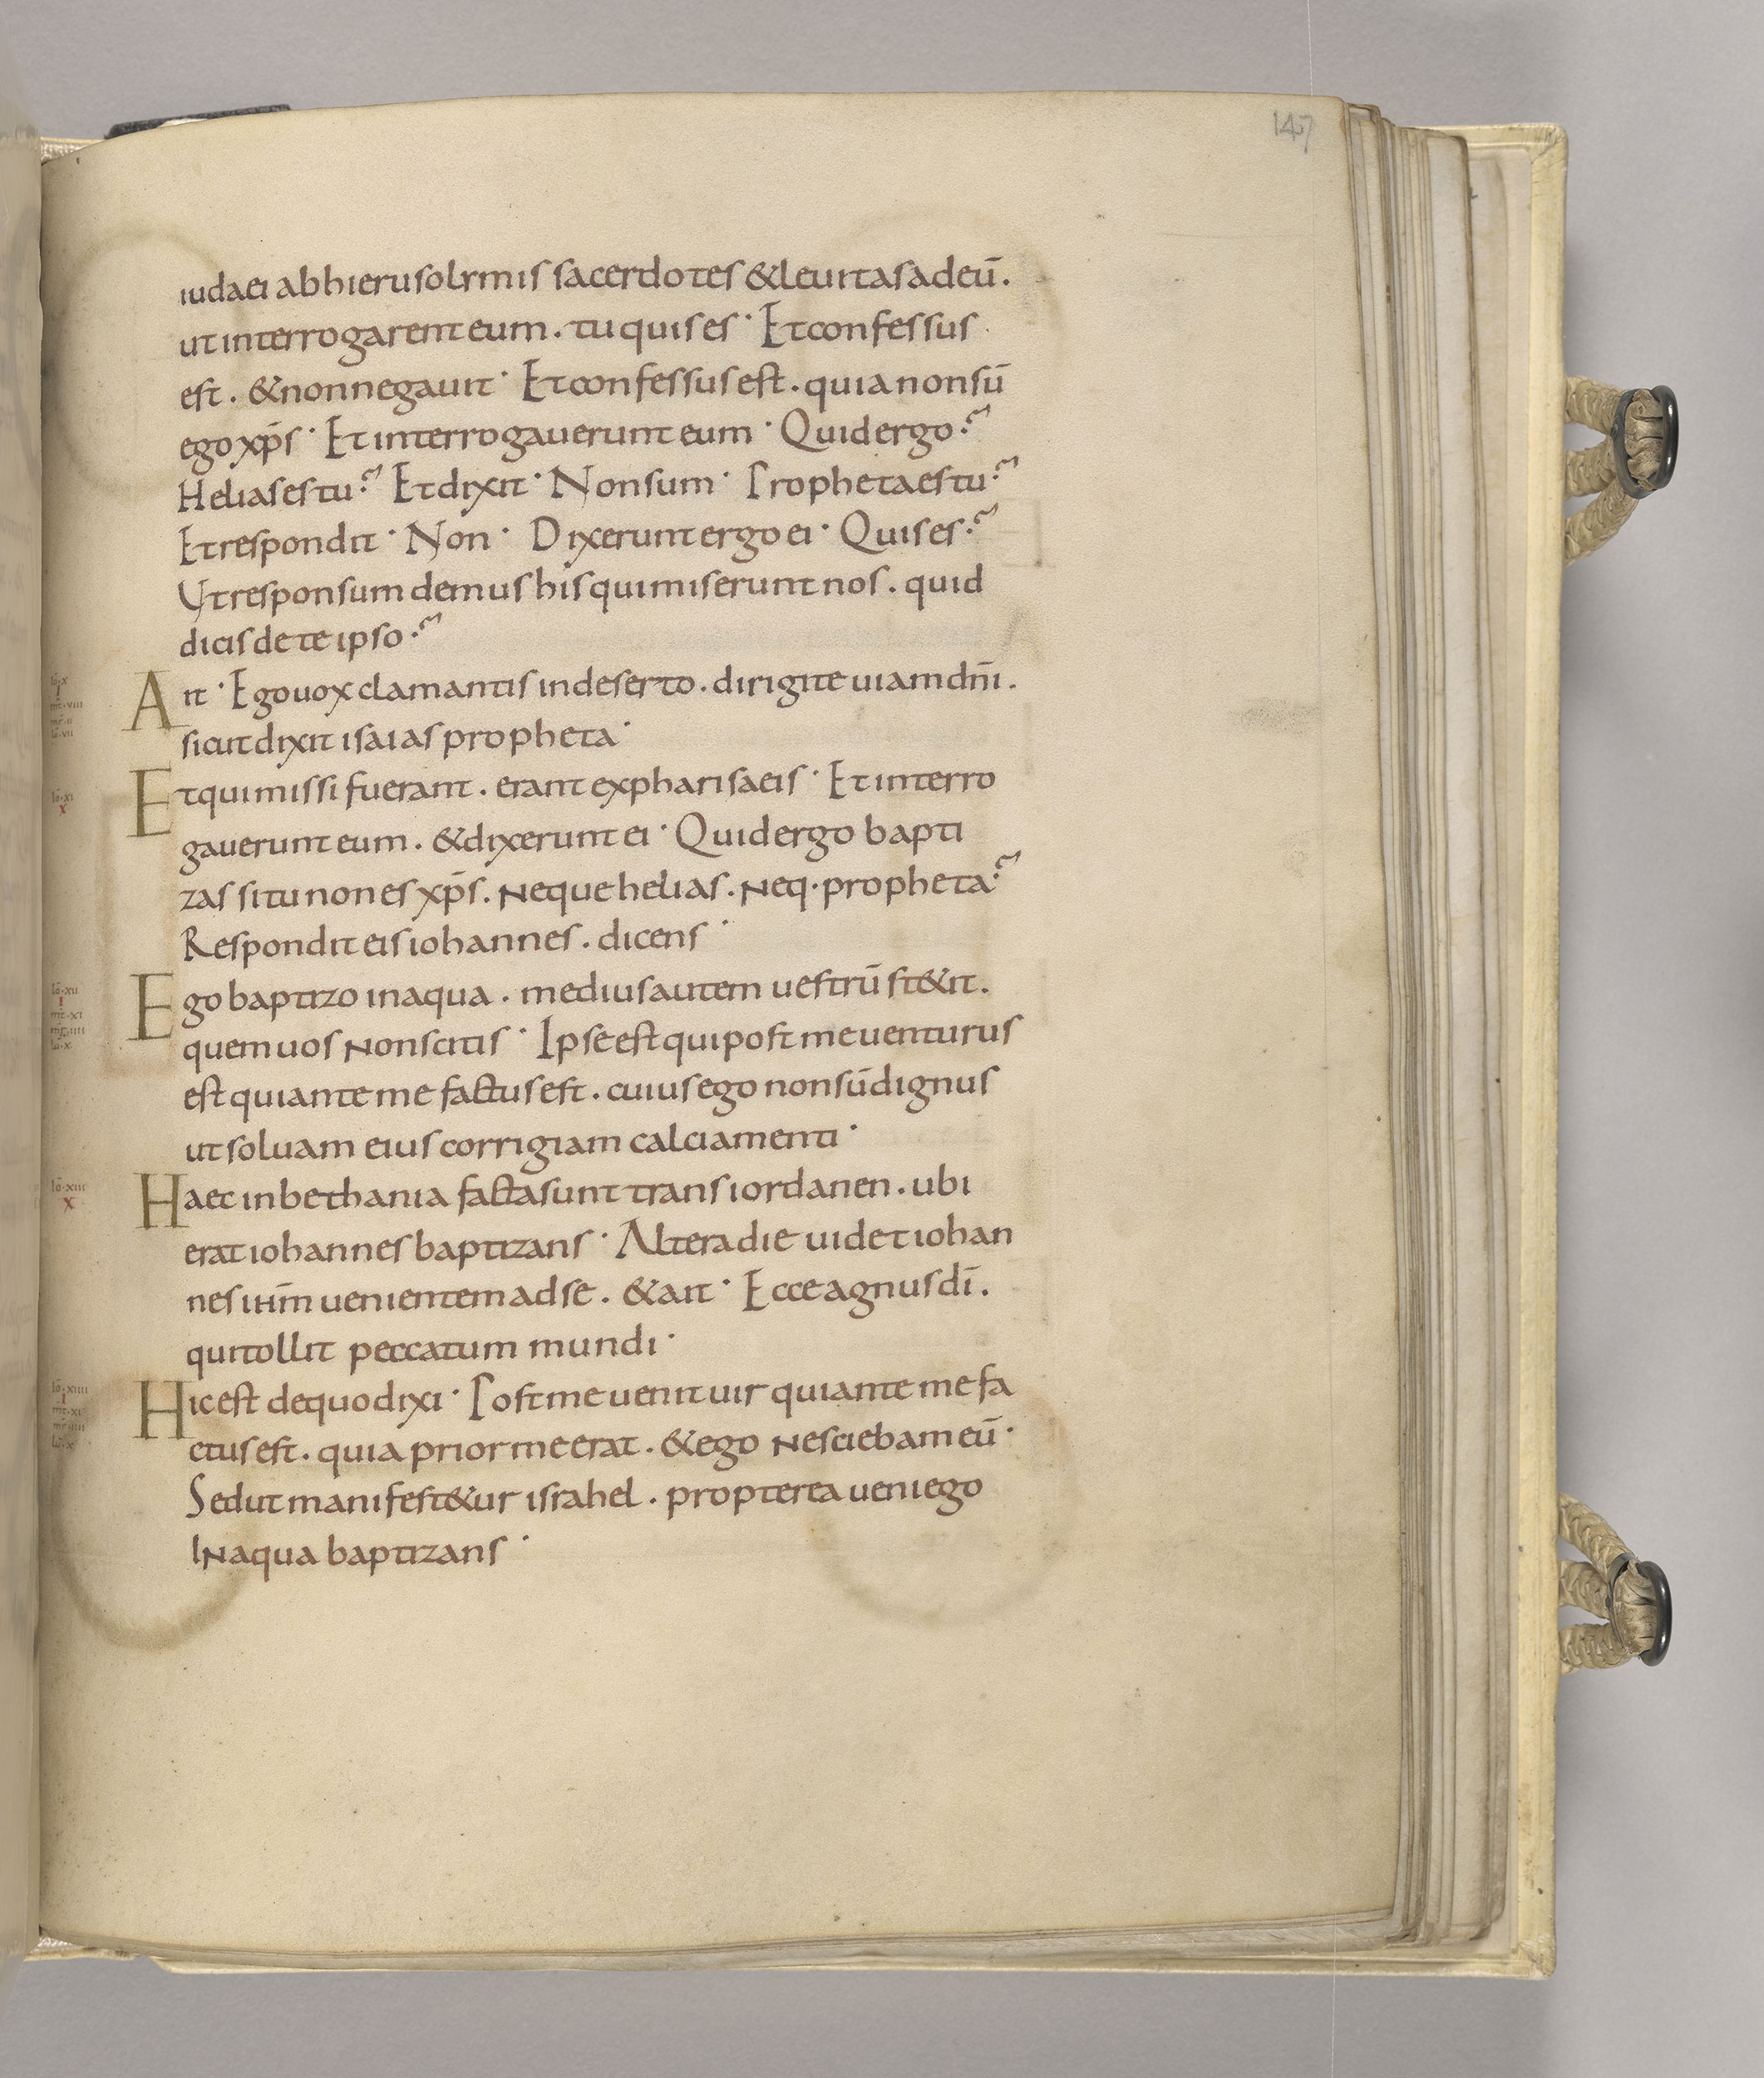 147
iudaei ab hierusolymis sacerdotes & leuitas ad eū.
ut interrogarent eum. tu quis es· Et confessus
est. & non negauit· Et confessus est. quia non sū
ego xp̄s· Et interrogauerunt eum· Quid ergo?
Helias es tu? Et dixit· Non sum· Propheta es tu?
Et respondit· Non· Dixerunt ergo ei· Quis es?
Ut responsum demus his qui miserunt nos. quid
dicis de te ipso?
Ait· Ego uox clamantis in deserto. dirigite uiam dn̄i.
sicut dixit isaias propheta·
Et qui missi fuerant. erant ex pharisaeis· Et interro
gauerunt eum. & dixerunt ei· Quid ergo bapti
zas si tu non es xp̄s. neque helias. neq· propheta?
Respondit eis iohannes. dicens·
Ego baptizo in aqua. medius autem uestrū st&it.
quem uos non scitis· Ipse est qui post me uenturus
est qui ante me factus est. cuius ego non sū dignus
ut soluam eius corrigiam calciamenti·
Haec in bethania facta sunt trans iordanen. ubi
erat iohannes baptizans· Altera die uidet iohan
nes ih̄m uenientem ad se. & ait· Ecce agnus dī.
qui tollit peccatum mundi·
Hic est de quo dixi· Post me uenit uir qui ante me fa
ctus est. quia prior me erat. & ego nesciebam eū·
Sed ut manifest&ur israhel. propterea ueni ego
in aqua baptizans·